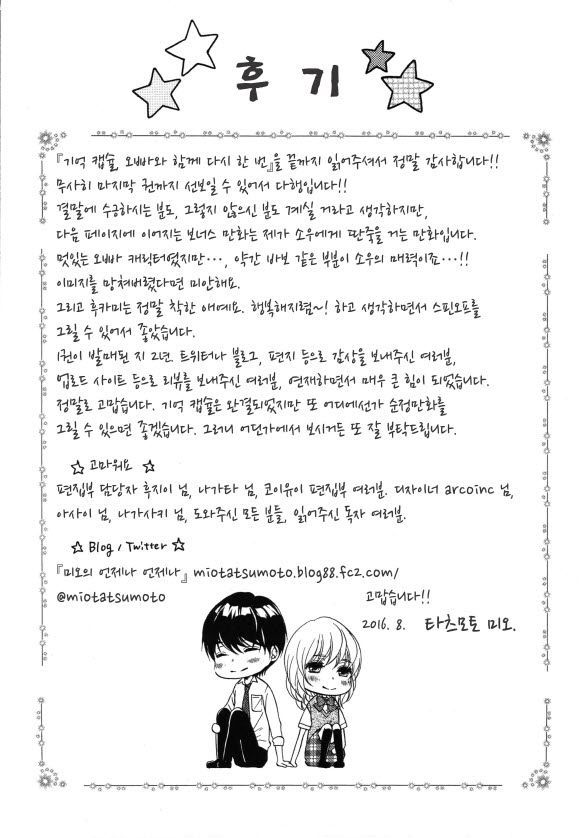 후 기
『기억 캡슐, 오빠와 함께 다시 한 번』을 끝까지 읽어주셔서 정말 감사합니다!!
무사히 마지막 권까지 선보일 수 있어서 다행입니다!!
결말에 수긍하시는 분도, 그렇지 않으신 분도 계실 거라고 생각하지만,
다음 페이지에 이어지는 보너스 만화는 제가 소우에게 딴죽을 거는 만화입니다.
멋있는 오빠 캐릭터였지만…, 약간 바보 같은 부분이 소우의 매력이죠…!!
이미지를 망쳐버렸다면 미안해요.
그리고 후카미는 정말 착한 애예요. 행복해지렴~! 하고 생각하면서 스핀오프를
그릴 수 있어서 좋았습니다.
1권이 발매된 지 2년. 트위터나 블로그, 편지 등으로 감상을 보내주신 여러분,
업로드 사이트 등으로 리뷰를 보내주신 여러분, 연재하면서 매우 큰 힘이 되었습니다.
정말로 고맙습니다. 기억 캡슐은 완결되었지만 또 어디에선가 순정만화를
그릴 수 있으면 좋겠습니다. 그러니 어딘가에서 보시거든 또 잘 부탁드립니다.
☆ 고마워요 ☆
편집부 담당자 후지이 님, 나가타 님, 코이유이 편집부 여러분. 디자이너 arcoinc 님,
아사이 님, 나가사키 님, 도와주신 모든 분들, 읽어주신 독자 여러분.
☆ Blog / Twitter ☆
『미오의 언제나 언제나』 miotatsumoto.blog88.fc2.com/
@miotatsumoto
고맙습니다!!
2016. 8. 타츠모토 미오.